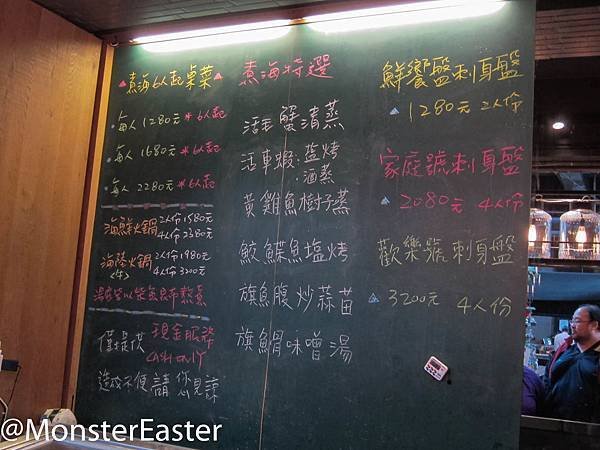 煮海6人起桌菜
每人1280元*6人起
每人1680元*6人起
每人2280元*6人起
海鮮火鍋 2人份1580元
4人份2380元
海陸火鍋 2人份1980元
(牛) 4人份3200元
湯底皆以
僅提供 現金服務
CASH ONLY
造成不便請您見諒
煮海特選
活毛蟹清蒸
活車蝦:盬烤
:酒蒸
黃雞魚樹子蒸
鮫鰈魚塩烤
旗魚腹炒蒜苗
旗鰯味噌湯
鮮饗盤刺身盤
1280元 2人份
家庭號刺身盤
2080元 4人份
歡樂號刺身盤
3200元 4人份
@MonsterEaster